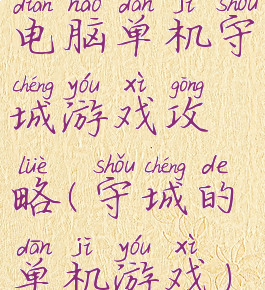 diàn nǎo dān jī shǒu
电脑单机守
chéng yóu xì gōng
城游戏攻
lüè shǒu chéng de
略(守城的
dān jī yóu xì
单机游戏)